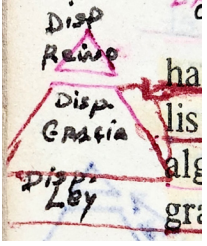 Disp
Reino
Disp.
Gracia
Disp.
Ley
ha
lis
alg
gra